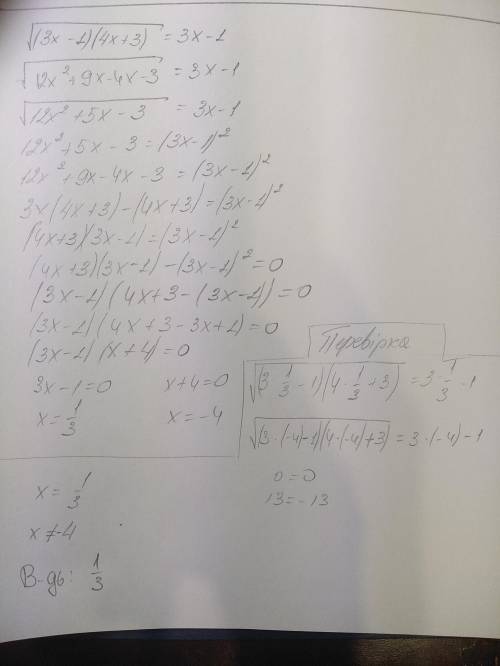 √((3x-1)(4x+3)) = 3x-1
√(12x²+9x-4x-3) = 3x-1
√(12x²+5x-3) = 3x-1
12x²+5x-3 = (3x-1)²
12x²+9x-4x-3 = (3x-1)²
3x(4x+3)-(4x+3) = (3x-1)²
(4x+3)(3x-1) = (3x-1)²
(4x+3)(3x-1)-(3x-1)² = 0
(3x-1)(4x+3-(3x-1)) = 0
(3x-1)(4x+3-3x+1) = 0
(3x-1)(x+4) = 0
3x-1=0 x+4=0
x = 1/3 x = -4
x = 1/3
x ≠ -4
В-дь: 1/3
Перевірка
√((3·1/3-1)(4·1/3+3)) = 3·1/3-1
√((3·(-4)-1)(4·(-4)+3)) = 3·(-4)-1
0=0
13=-13